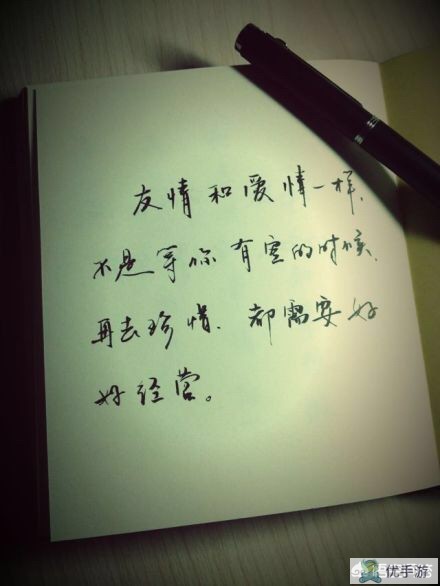 友情和爱情一样,
不是等你有空的时候,
再去珍惜.都需要好
好经营。
优手游